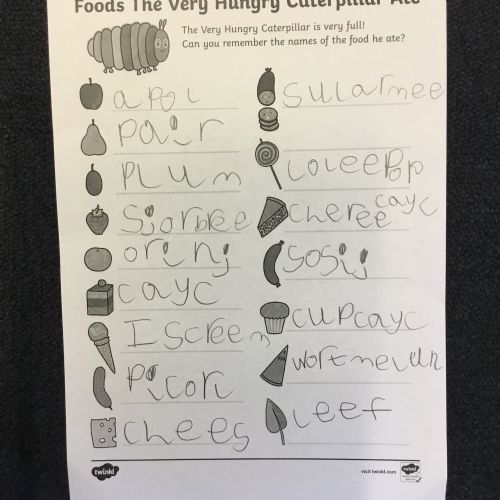 Foods The Very Hungry Caterpillar Ate
The Very Hungry Caterpillar is very full!
Can you remember the names of the food he ate?
apol
pair
plum
Sjorbree
orinj
cayc
Iscreem
Picorl
chees
sularmee
loleePop
cheree cayc
sosij
cupcayc
wortmelun
leef
twinkl
visit twinkl.com